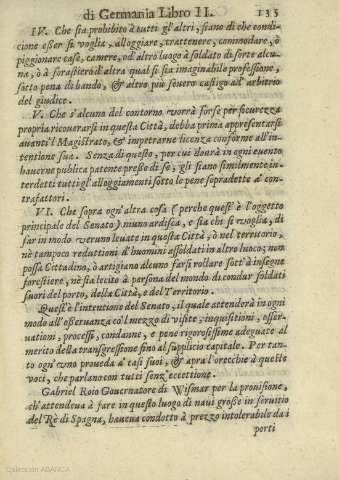 di Germania Libro II. 135
IV. Che sia prohibito à tutti gl'altri, siano di che condi-
cione esser si voglia, alloggiare, trattenere, commodare, ò
piggionare case, camere, od altro luogo à soldato di sorte alcu-
na, ò à forastiero d'altra qual si sia imaginabile professione,
sotto pena di bando, & altro più severo castigo ad arbitrio
del giudice.
V. Che s'alcuno del contorno vorrà forse per sicurezza
propria ricoverarsi in questa Città, debba prima appresentarsi
auanti'l Magistrato, & impetrarne licenza conforme all'in-
tentione sua. Senza di questo, per cui dourà in ogni euento
hauerne publica patente presso di se, gli siano similmente in-
terdetti tutti gl'alloggiamenti sotto le pene sopradette a' con-
trafattori.
VI. Che sopra ogn'altra cosa (perche quest' è l'oggetto
principale del Senato) niuno ardisca, e sia chi si voglia, di
far in modo veruno leuate in questa Città, ò nel territorio,
nè tampoco reduttioni d'huomini assoldati in altro luoco; non
possa Cittadino, ò artigiano alcuno farsi rollare sott'à insegne
forestiere, nè sia lecito à persona del mondo di condur soldati
fuori del porto, della Città, e del Territorio.
Quest'è l'intentione del Senato, il quale attenderà in ogni
modo all'osseruanza co'l mezzo di visite, inquisitioni, osser-
uationi, processi, condanne, e pene rigorosissime adeguate al
merito della transgressione fino al supplicio capitale. Per tan-
to ogn'vno proueda a' casi suoi, & apra l'orecchie à queste
voci, che parlano con tutti senz'eccettione.
Gabriel Roio Gouernatore di Wismar per la prouisione,
ch'attendeua à fare in questo luogo di naui grosse in seruitio
del Rè di Spagna, haueua condotto à prezzo intolerabile da i
porti
Colección ABANCA